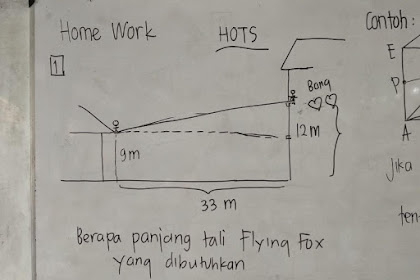 Home Work
HOTS
1
Bang
12 m
9 m
33 m
Berapa panjang tali Flying Fox
yang dibutuhkan
Contoh:
E
P
A
jika
ten-